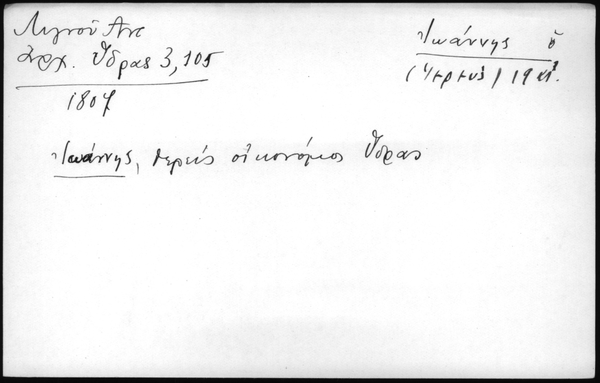 Λιγνοῦ Αντ
Ἀρχ. Ὕδρας 3, 105
1807
Ἰωάννης ὁ
(Ἱερεύς) 19
Ἰωάννης, ἱερεύς οἰκονόμος Ὕδρας